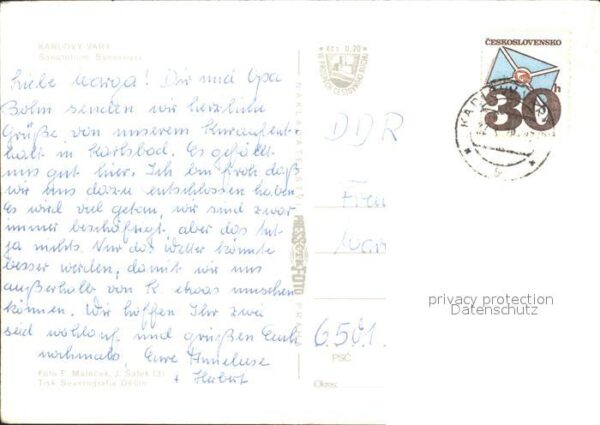 KARLOVY VARY
Sanatorium Sanssouci
Liebe Marga! Dir und Opa
Bohm senden wir herzliche
Grüße von unserem Kuraufent-
halt in Karlsbad. Es gefällt
uns gut hier. Ich bin froh, daß
wir uns dazu entschlossen haben.
Es wird viel getan, wir sind zwar
immer beschäftigt, aber das tut
ja nichts. Nur das Wetter könnte
besser werden, damit wir uns
außerhalb von K. etwas ansehen
können. Wir hoffen Ihr zwei
seid wohlauf und grüßen Euch
nochmals, Eure Anneliese
+ Herbert
Foto F. Maleček, J. Šafek (3)
Tisk Severografia Děčín
Kčs 0,20
PRESSFOTO
ČESKOSLOVENSKO
30h
DDR
Frau
Mar
6501
PSČ
Okres:
privacy protection
Datenschutz